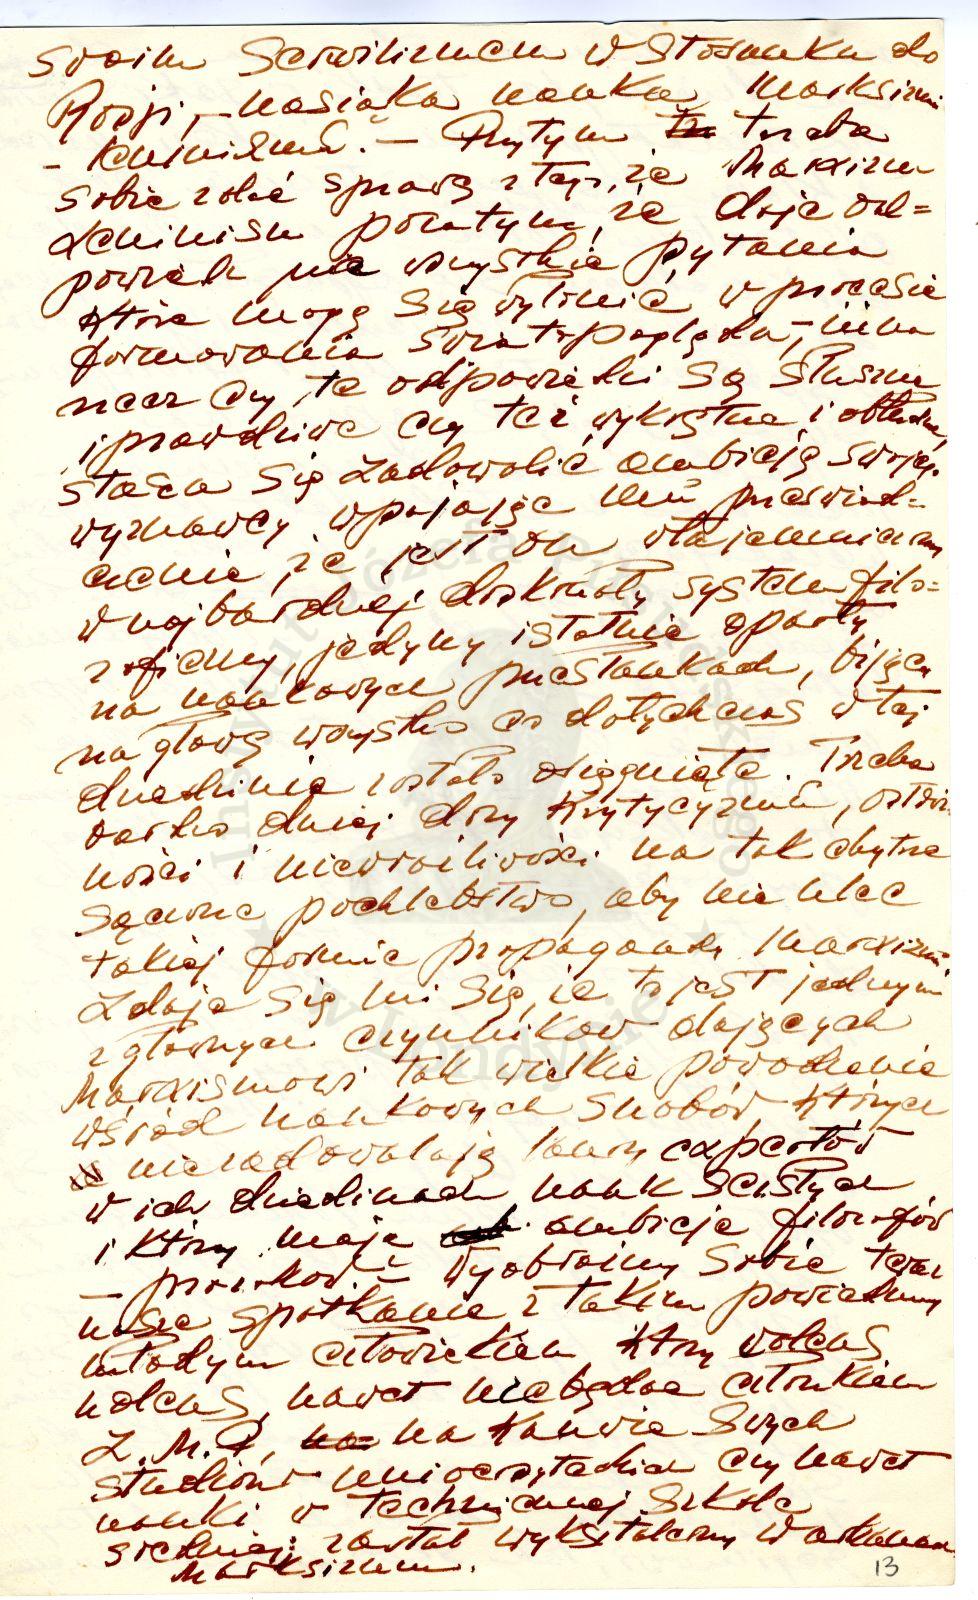 swoim serwilizmem w stosunku do
Rosji, - nasiąka nauką Marksizmu
- Leninizmu. - Przytym trzeba
sobie zdać sprawę z tego, że Marxizm
Leninism poza tym, że daje od=
powiedź na wszystkie pytania
które mogą się wyłonić w procesie
formowania światopoglądu, -
czy te odpowiedzi są słuszne
i prawdziwe czy też wykrętne i obłudne,
stara się zadowolić ambicję swojego
wyznawcy wpajając mu przeświad=
czenie, że jest on wtajemniczony
w najbardziej doskonały system filo=
zoficzny, jedyny istotnie oparty
na naukowych przesłankach, bijący
na głowę wszystko co dotychczas w tej
dziedzinie zostało osiągnięte. Trzeba
bardzo dużej dozy krytycyzmu, ostroż
ności i niewrażliwości na tak chytrze
sączone pochlebstwo, aby nie ulec
takiej formie propagandy Marxizmu.
Zdaje się mi się, że to jest jednym
z głównych czynników dających
Marxismowi tak wielkie powodzenie
wśród naukowych snobów, których
nie zadowalają laury expertów
w ich dziedzinach nauk ścisłych
i którzy mają ambicje filozofów
- proroków. - Wyobraźmy sobie teraz
nasze spotkanie z takim powiedzmy
młodym człowiekiem który wolens
nolens, nawet nie będąc członkiem
Z.M.P., na kanwie swych
studiów uniwersyteckich czy nawet
nauki w technicznej szkole
średniej został wykształcony w arkanach
Marksizmu.
13
Instytut Józefa Piłsudskiego
w Londynie